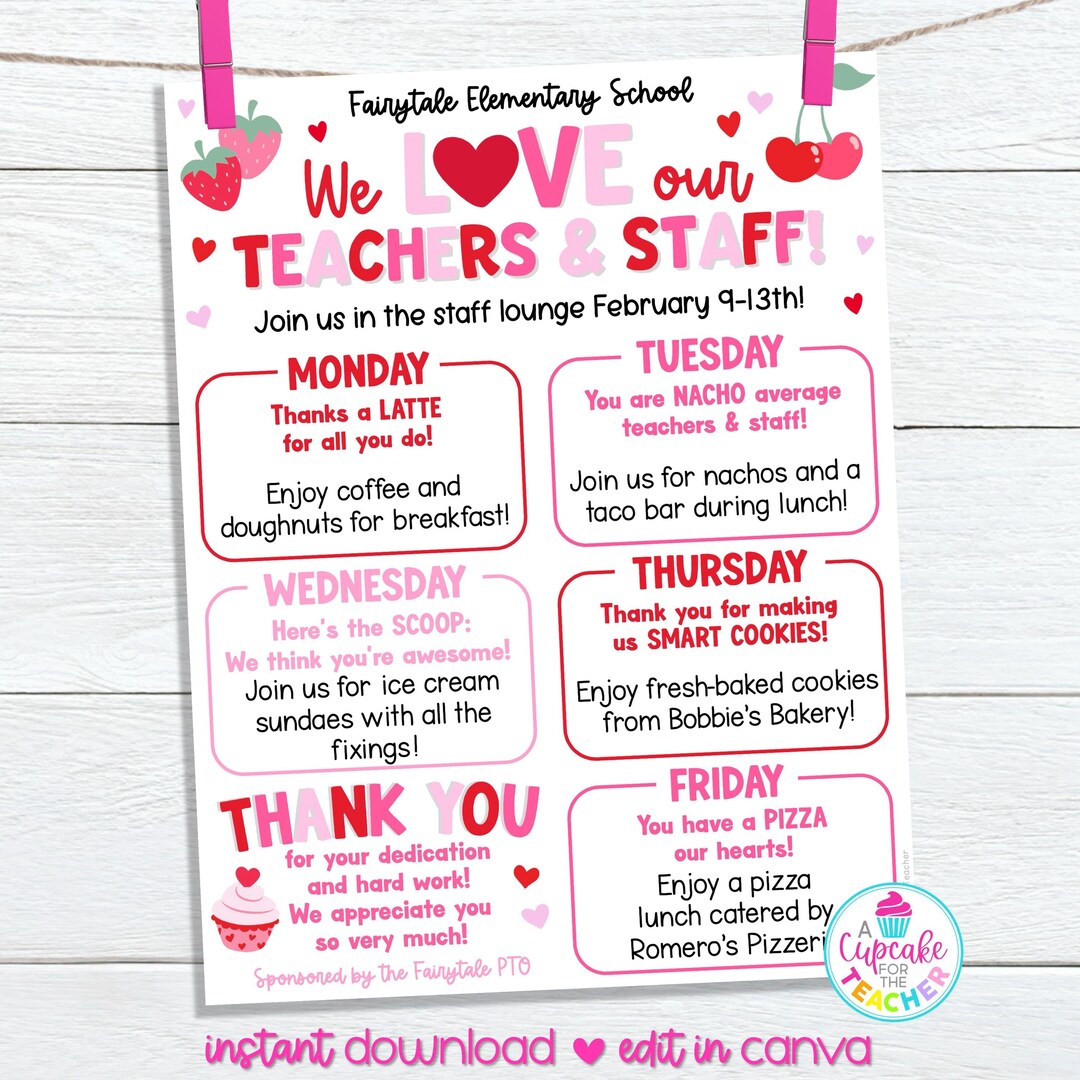 Fairytale Elementary School
We LOVE our
TEACHERS & STAFF!
Join us in the staff lounge February 9-13th!
MONDAY
Thanks a LATTE
for all you do!
Enjoy coffee and
doughnuts for breakfast!
TUESDAY
You are NACHO average
teachers & staff!
Join us for nachos and a
taco bar during lunch!
WEDNESDAY
Here's the SCOOP:
We think you're awesome!
Join us for ice cream
sundaes with all the
fixings!
THURSDAY
Thank you for making
us SMART COOKIES!
Enjoy fresh-baked cookies
from Bobbie's Bakery!
THANK YOU
for your dedication
and hard work!
We appreciate you
so very much!
Sponsored by the Fairytale PTO
FRIDAY
You have a PIZZA
our hearts!
Enjoy a pizza
lunch catered by
Romero's
A
Cupcake
FOR
THE
TEACHER
instant download edit in canva